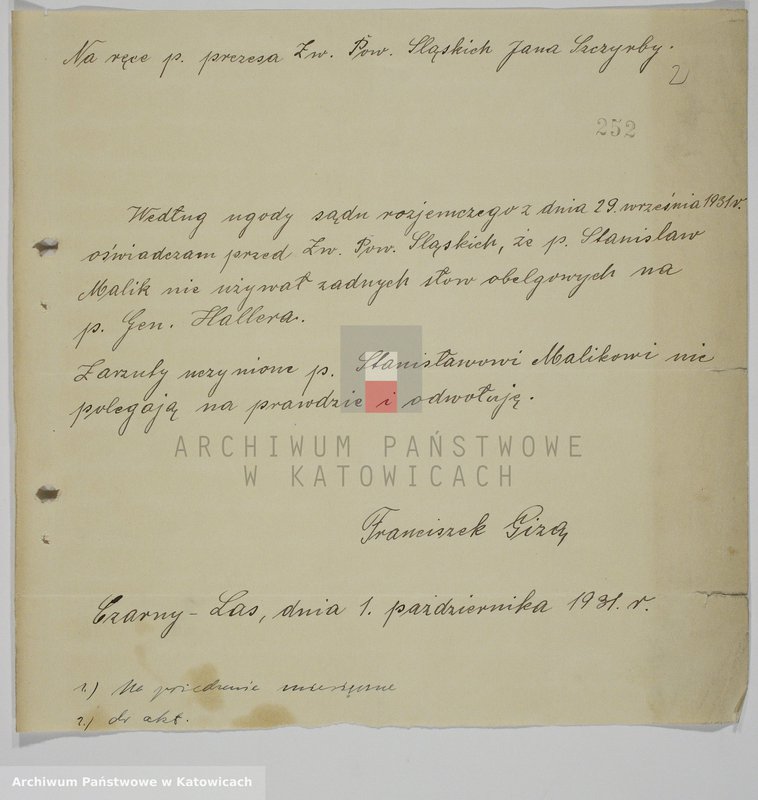 Na ręce p. prezesa Zw. Pow. Śląskich Jana Szczyrby.
2
252
Według ugody sądu rozjemczego z dnia 29. września 1931 r.
oświadczam przed Zw. Pow. Śląskich, że p. Stanisław
Malik nie używał żadnych słow obelgowych na
p. Gen. Hallera.
Zarzuty uczynione p. Stanisławowi Malikowi nie
polegają na prawdzie i odwołuję.
ARCHIWUM PAŃSTWOWE
W KATOWICACH
Franciszek Giza
Czarny-Las, dnia 1. października 1931. r.
1.) Na
2.) do akt.
Archiwum Państwowe w Katowicach